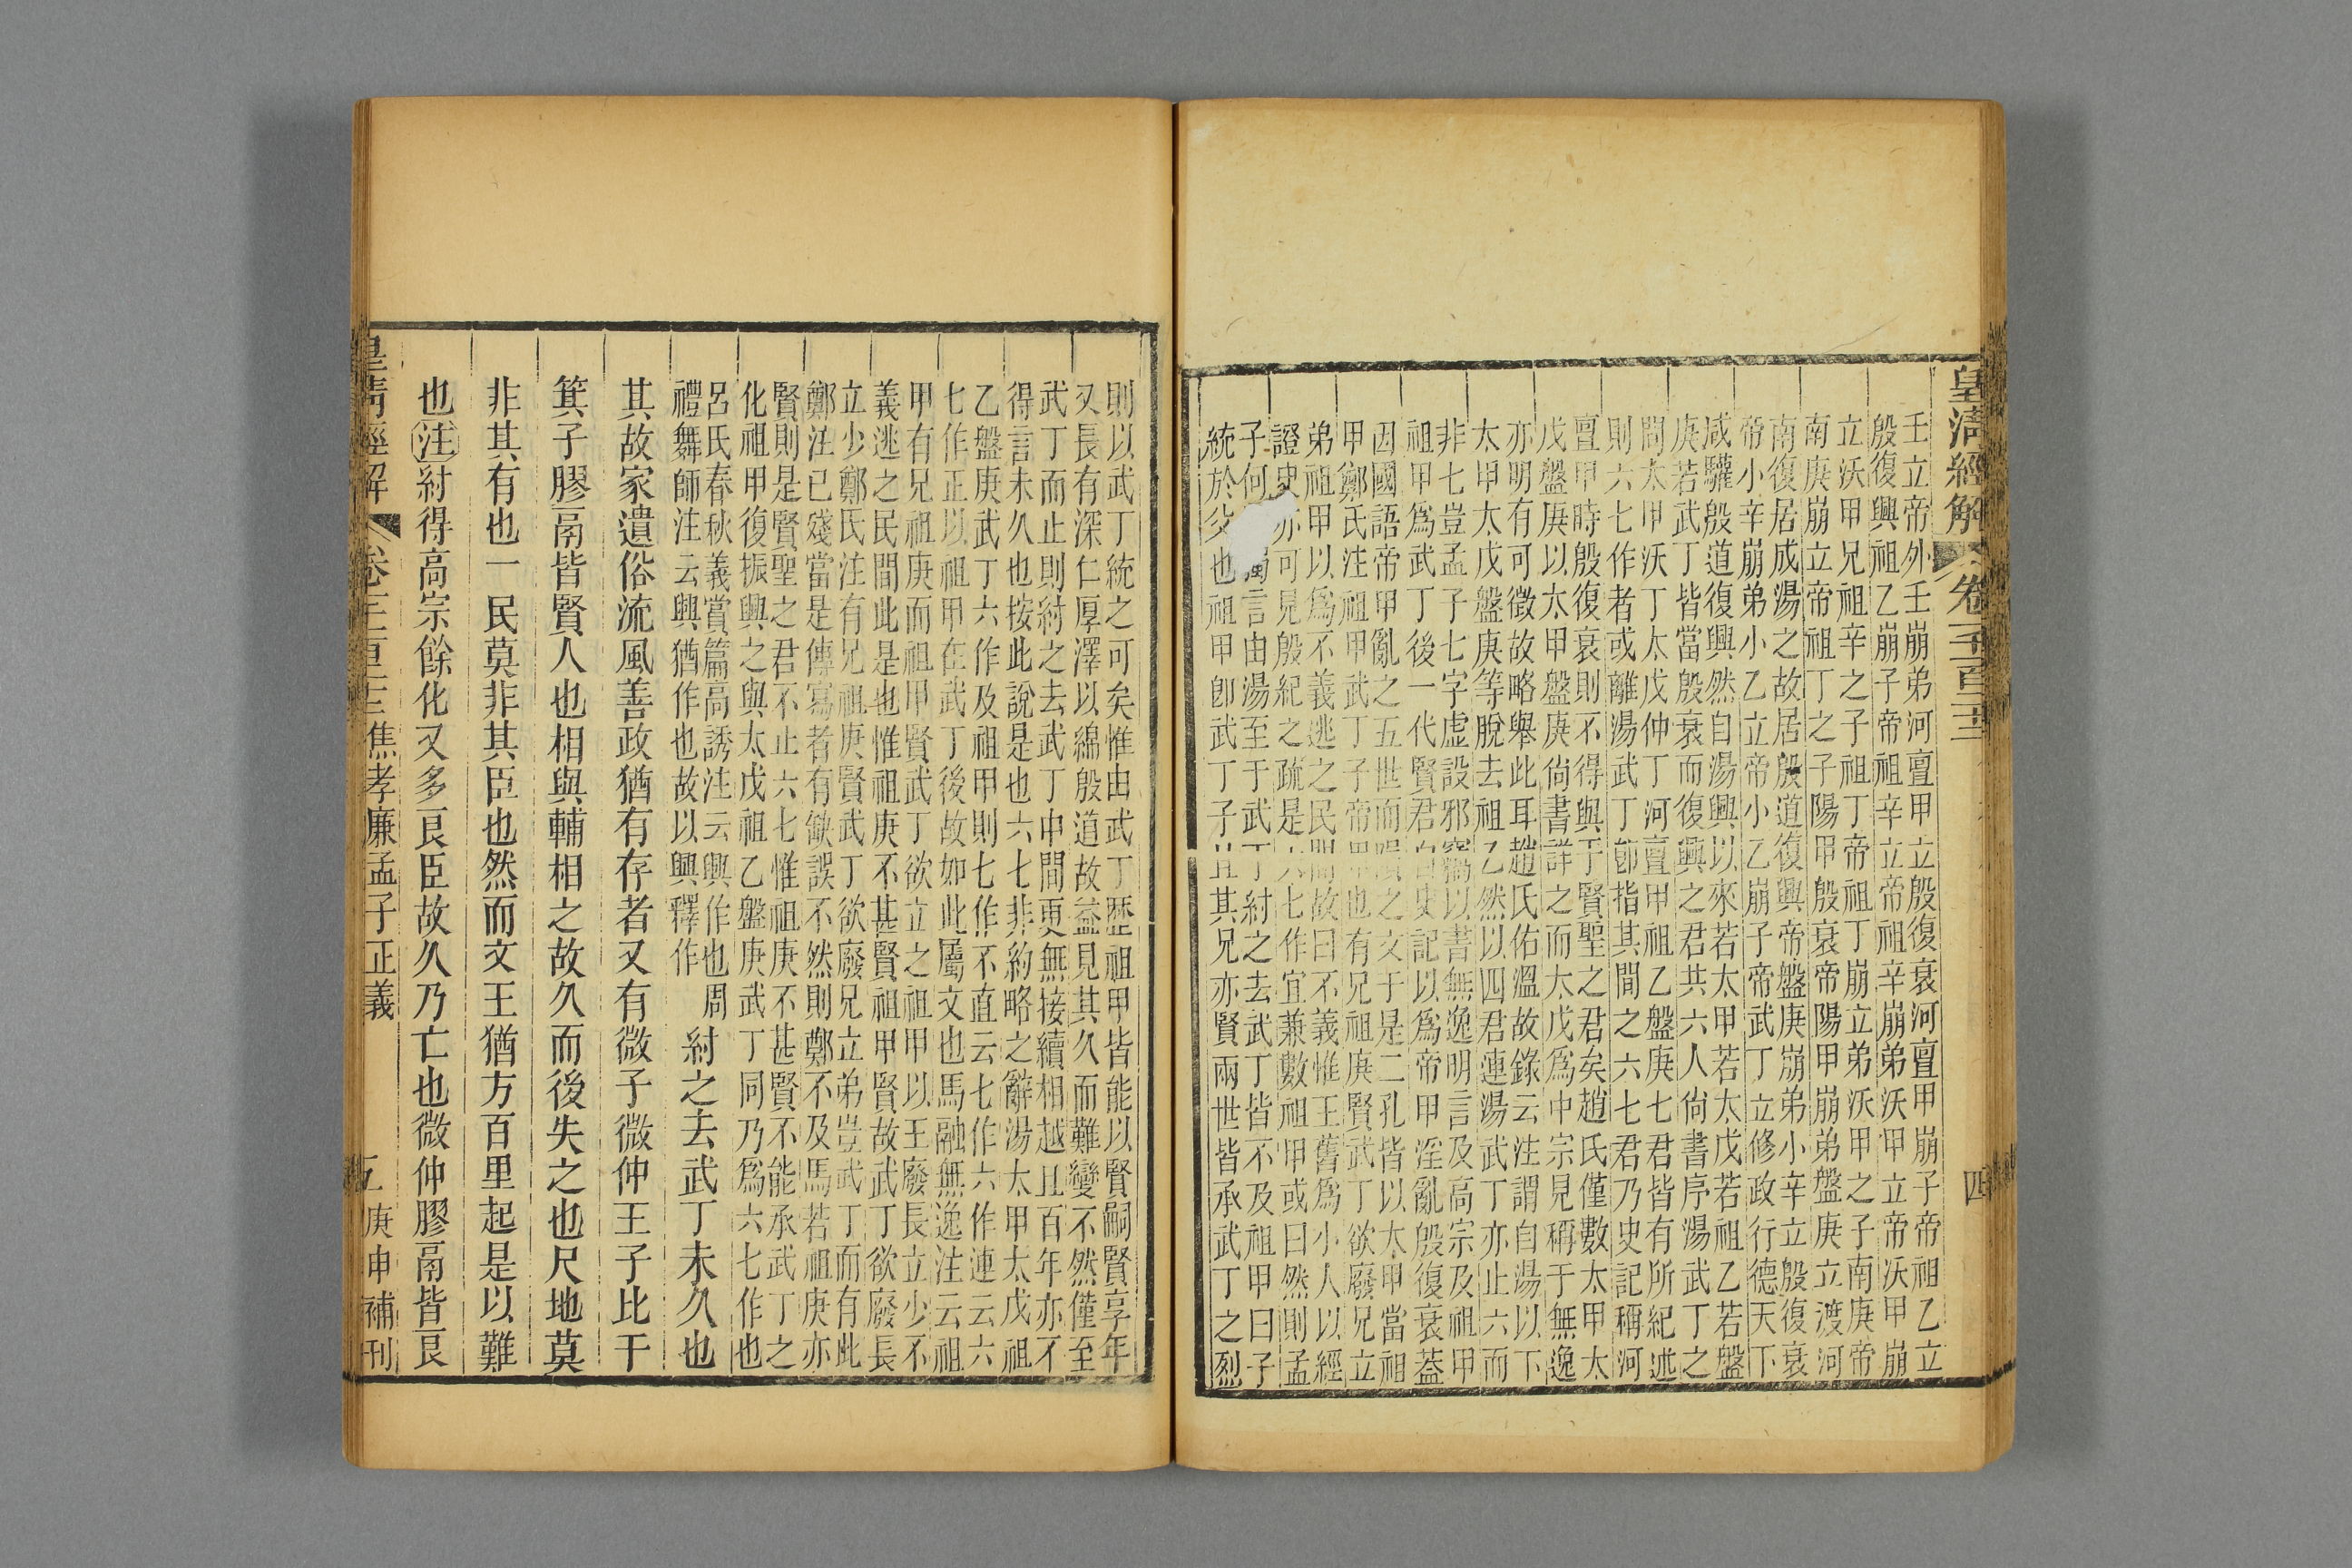 皇清經解 卷 四
壬立帝外壬崩弟河亶甲立殷復衰河亶甲崩子帝祖乙立
殷復興祖乙崩子帝祖辛立帝祖辛崩弟沃甲立帝沃甲崩
立沃甲兄祖辛之子祖丁帝祖丁崩立弟沃甲之子南庚帝
南庚崩立帝祖丁之子陽甲殷衰帝陽甲崩弟盤庚立渡河
南復居成湯之故居殷道復興帝盤庚崩弟小辛立殷復衰
帝小辛崩弟小乙立帝小乙崩子帝武丁立修政行德天下
咸驩殷道復興然自湯興以來若太甲若太戊若祖乙若盤
庚若武丁皆當殷衰而復興之君共六人尙書序湯武丁之
間太甲沃丁太戊仲丁河亶甲祖乙盤庚七君皆有所紀述
則六七作者或離湯武丁卽指其間之六七君乃史記稱河
亶甲時殷復衰則不得與于賢聖之君矣趙氏僅數太甲太
戊盤庚以太甲盤庚尙書詳之而太戊爲中宗見稱于無逸
亦明有可徵故略舉此耳趙氏佑溫故錄云注謂自湯以下
太甲太戊盤庚等脫去祖乙然以四君連湯武丁亦止六而
非七豈孟子七字虛設邪竊以書無逸明言及高宗及祖甲
祖甲爲武丁後一代賢君自史記以爲帝甲淫亂殷復衰葢
因國語帝甲亂之五世而隕之文于是二孔皆以太甲當祖
甲鄭氏注祖甲武丁子帝甲也有兄祖庚賢武丁欲廢兄立
弟祖甲以爲不義逃之民間故曰不義惟王舊爲小人以經
證史亦可見殷紀之疏是六七作宜兼數祖甲或曰然則孟
子何獨言由湯至于武丁紂之去武丁皆不及祖甲曰子
統於父也祖甲卽武丁子且其兄亦賢兩世皆承武丁之烈
則以武丁統之可矣惟由武丁歷祖甲皆能以賢嗣賢享年
又長有深仁厚澤以綿殷道故益見其久而難變不然僅至
武丁而止則紂之去武丁中間更無接續相越且百年亦不
得言未久也按此說是也六七非約略之辭湯太甲太戊祖
乙盤庚武丁六作及祖甲則七作不直云七作六作連云六
七作正以祖甲在武丁後故如此屬文也馬融無逸注云祖
甲有兄祖庚而祖甲賢武丁欲立之祖甲以王廢長立少不
義逃之民間此是也惟祖庚不甚賢祖甲賢故武丁欲廢長
立少鄭氏注有兄祖庚賢武丁欲廢兄立弟豈武丁而有此
鄭注已殘當是傳寫者有缺誤不然則鄭不及馬若祖庚亦
賢則是賢聖之君不止六七惟祖庚不甚賢不能承武丁之
化祖甲復振興之與太戊祖乙盤庚武丁同乃爲六七作也
呂氏春秋義賞篇高誘注云興作也周
禮舞師注云興猶作也故以興釋作
紂之去武丁未久也
其故家遺俗流風善政猶有存者又有微子微仲王子比干
箕子膠鬲皆賢人也相與輔相之故久而後失之也尺地莫
非其有也一民莫非其臣也然而文王猶方百里起是以難
也注紂得高宗餘化又多良臣故久乃亡也微仲膠鬲皆良
皇清經解 卷 焦孝廉孟子正義 五 庚申補刊